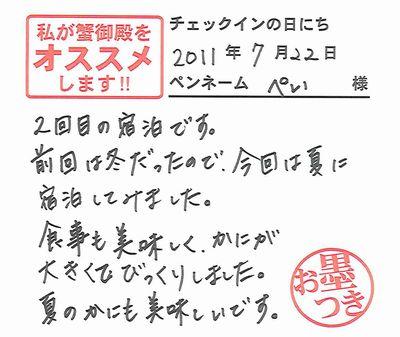 私が蟹御殿を
オススメ
します!!
チェックインの日にち
2011年7月22日
ペンネーム ぺい 様
2回目の宿泊です。
前回は冬だったので、今回は夏に
宿泊してみました。
食事も美味しく、かにが
大きくてびっくりしました。
夏のかにも美味しいです。
お墨つき